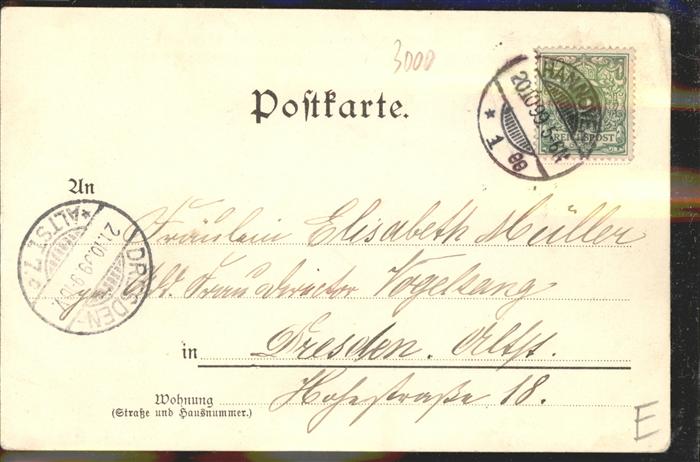 3000
HANNOVER
20.10.99.5-6N
* 1 oo
REICHSPOST
Postkarte.
An
Fräulein Elisabeth Müller
Frau Director Vogelsang
in Dresden. Altst.
Hohestraße 18.
Wohnung
(Straße und Hausnummer.)
DRESDEN-
*ALTST. 7
21.10.99.9-10V.
E